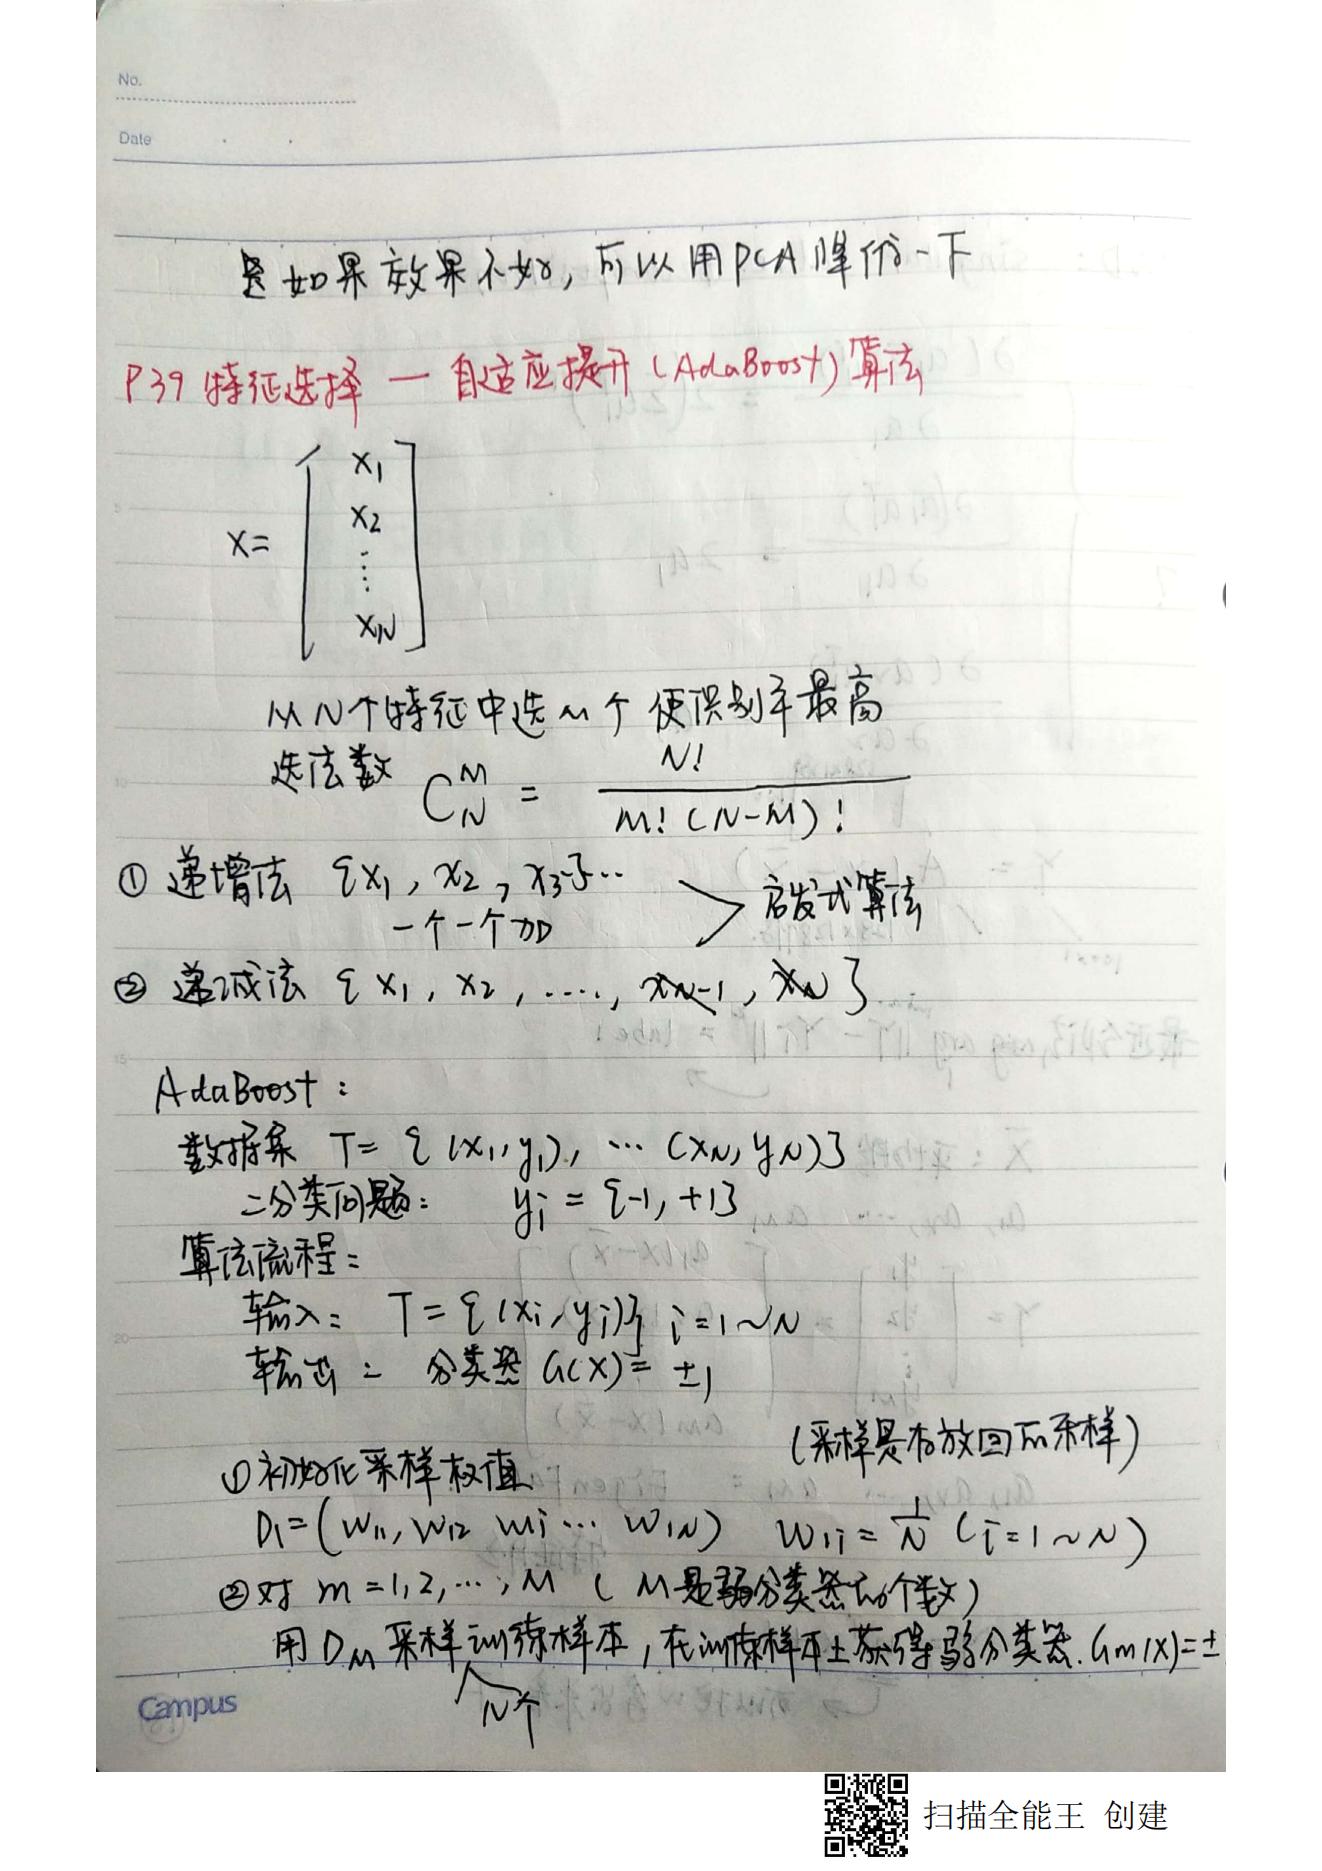 No.
Date
如果效果不好,可以用PCA降价一下
P39 特征选择 — 自适应提升(AdaBoost)算法
X= [ X1
X2
⋮
XN ]
N个特征中选M个 使识别率最高
选法数 C_N^M = N! / M!(N-M)!
① 递增法 {X1, X2, X3}…
一个一个加
启发式算法
② 递减法 {X1, X2, ...., XN-1, XN}
AdaBoost:
数据集 T= {(X1, y1), … (XN, yN)}
二分类问题: yi = {-1, +1}
算法流程:
输入: T={(Xi, yi)} i=1~N
输出: 分类器 G(X)= ±1
(采样是有放回的采样)
① 初始化采样权值
D1=(W11, W12 W1i … W1N) W1i = 1/N (i=1~N)
② 对 m=1,2,…,M ( M是弱分类器的个数)
用DM采样训练样本,在训练样本上获得弱分类器. Gm(X)=±
N个
Campus
扫描全能王 创建